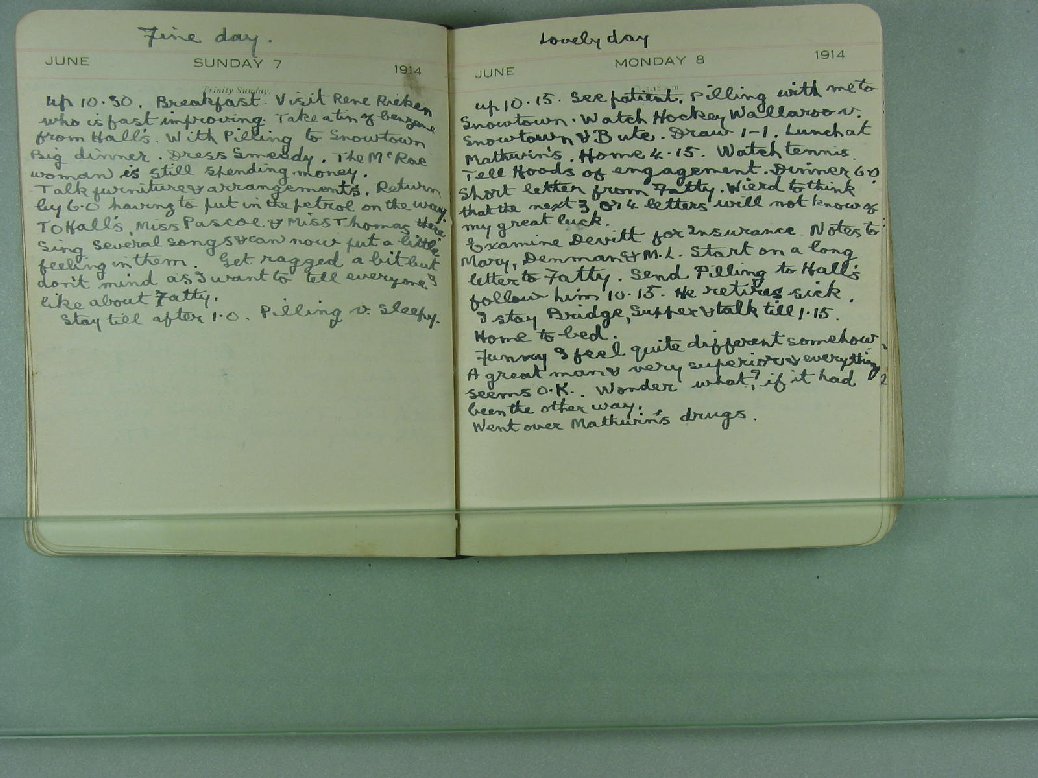 Fine day.
JUNE SUNDAY 7 1914
Trinity Sunday
Up 10.30. Breakfast. Visit Rene
who is fast improving. Take a tin of benzene
from Hall's. With Pilling to Snowtown
Big dinner. Dress Smeedy. The McRae
woman is still spending money.
Talk furniture & arrangements. Return
by 6.0 having to put in the petrol on the way.
To Hall's, Miss Pascoe & Miss Thomas here.
Sing several songs & can now put a little
feeling in them. Get ragged a bit but
don't mind as I want to tell everyone I
like about Fatty.
Stay till after 1.0. Pilling v. sleepy.
Lovely day
JUNE MONDAY 8 1914
Up 10.15. See patient. Pilling with me to
Snowtown. Watch Hockey Wallaroo v.
Snowtown & Bute. Draw 1-1. Lunch at
Mathurin's. Home 4.15. Watch tennis.
Tell Hoods of engagement. Dinner 6.0
Short letter from Fatty. Wierd to think
that the next 3 or 4 letters will not know of
my great luck.
Examine Devitt for Insurance. Notes to
Mary, Denman & M.L. Start on a long
letter to Fatty. Send Pilling to Hall's
follow him 10.15. He retires sick.
I stay Bridge, Supper & talk till 1.15.
Home to bed.
Funny I feel quite different somehow.
A great man & very superior & everything
seems O.K. Wonder what? if it had
been the other way.
Went over Mathurin's drugs.